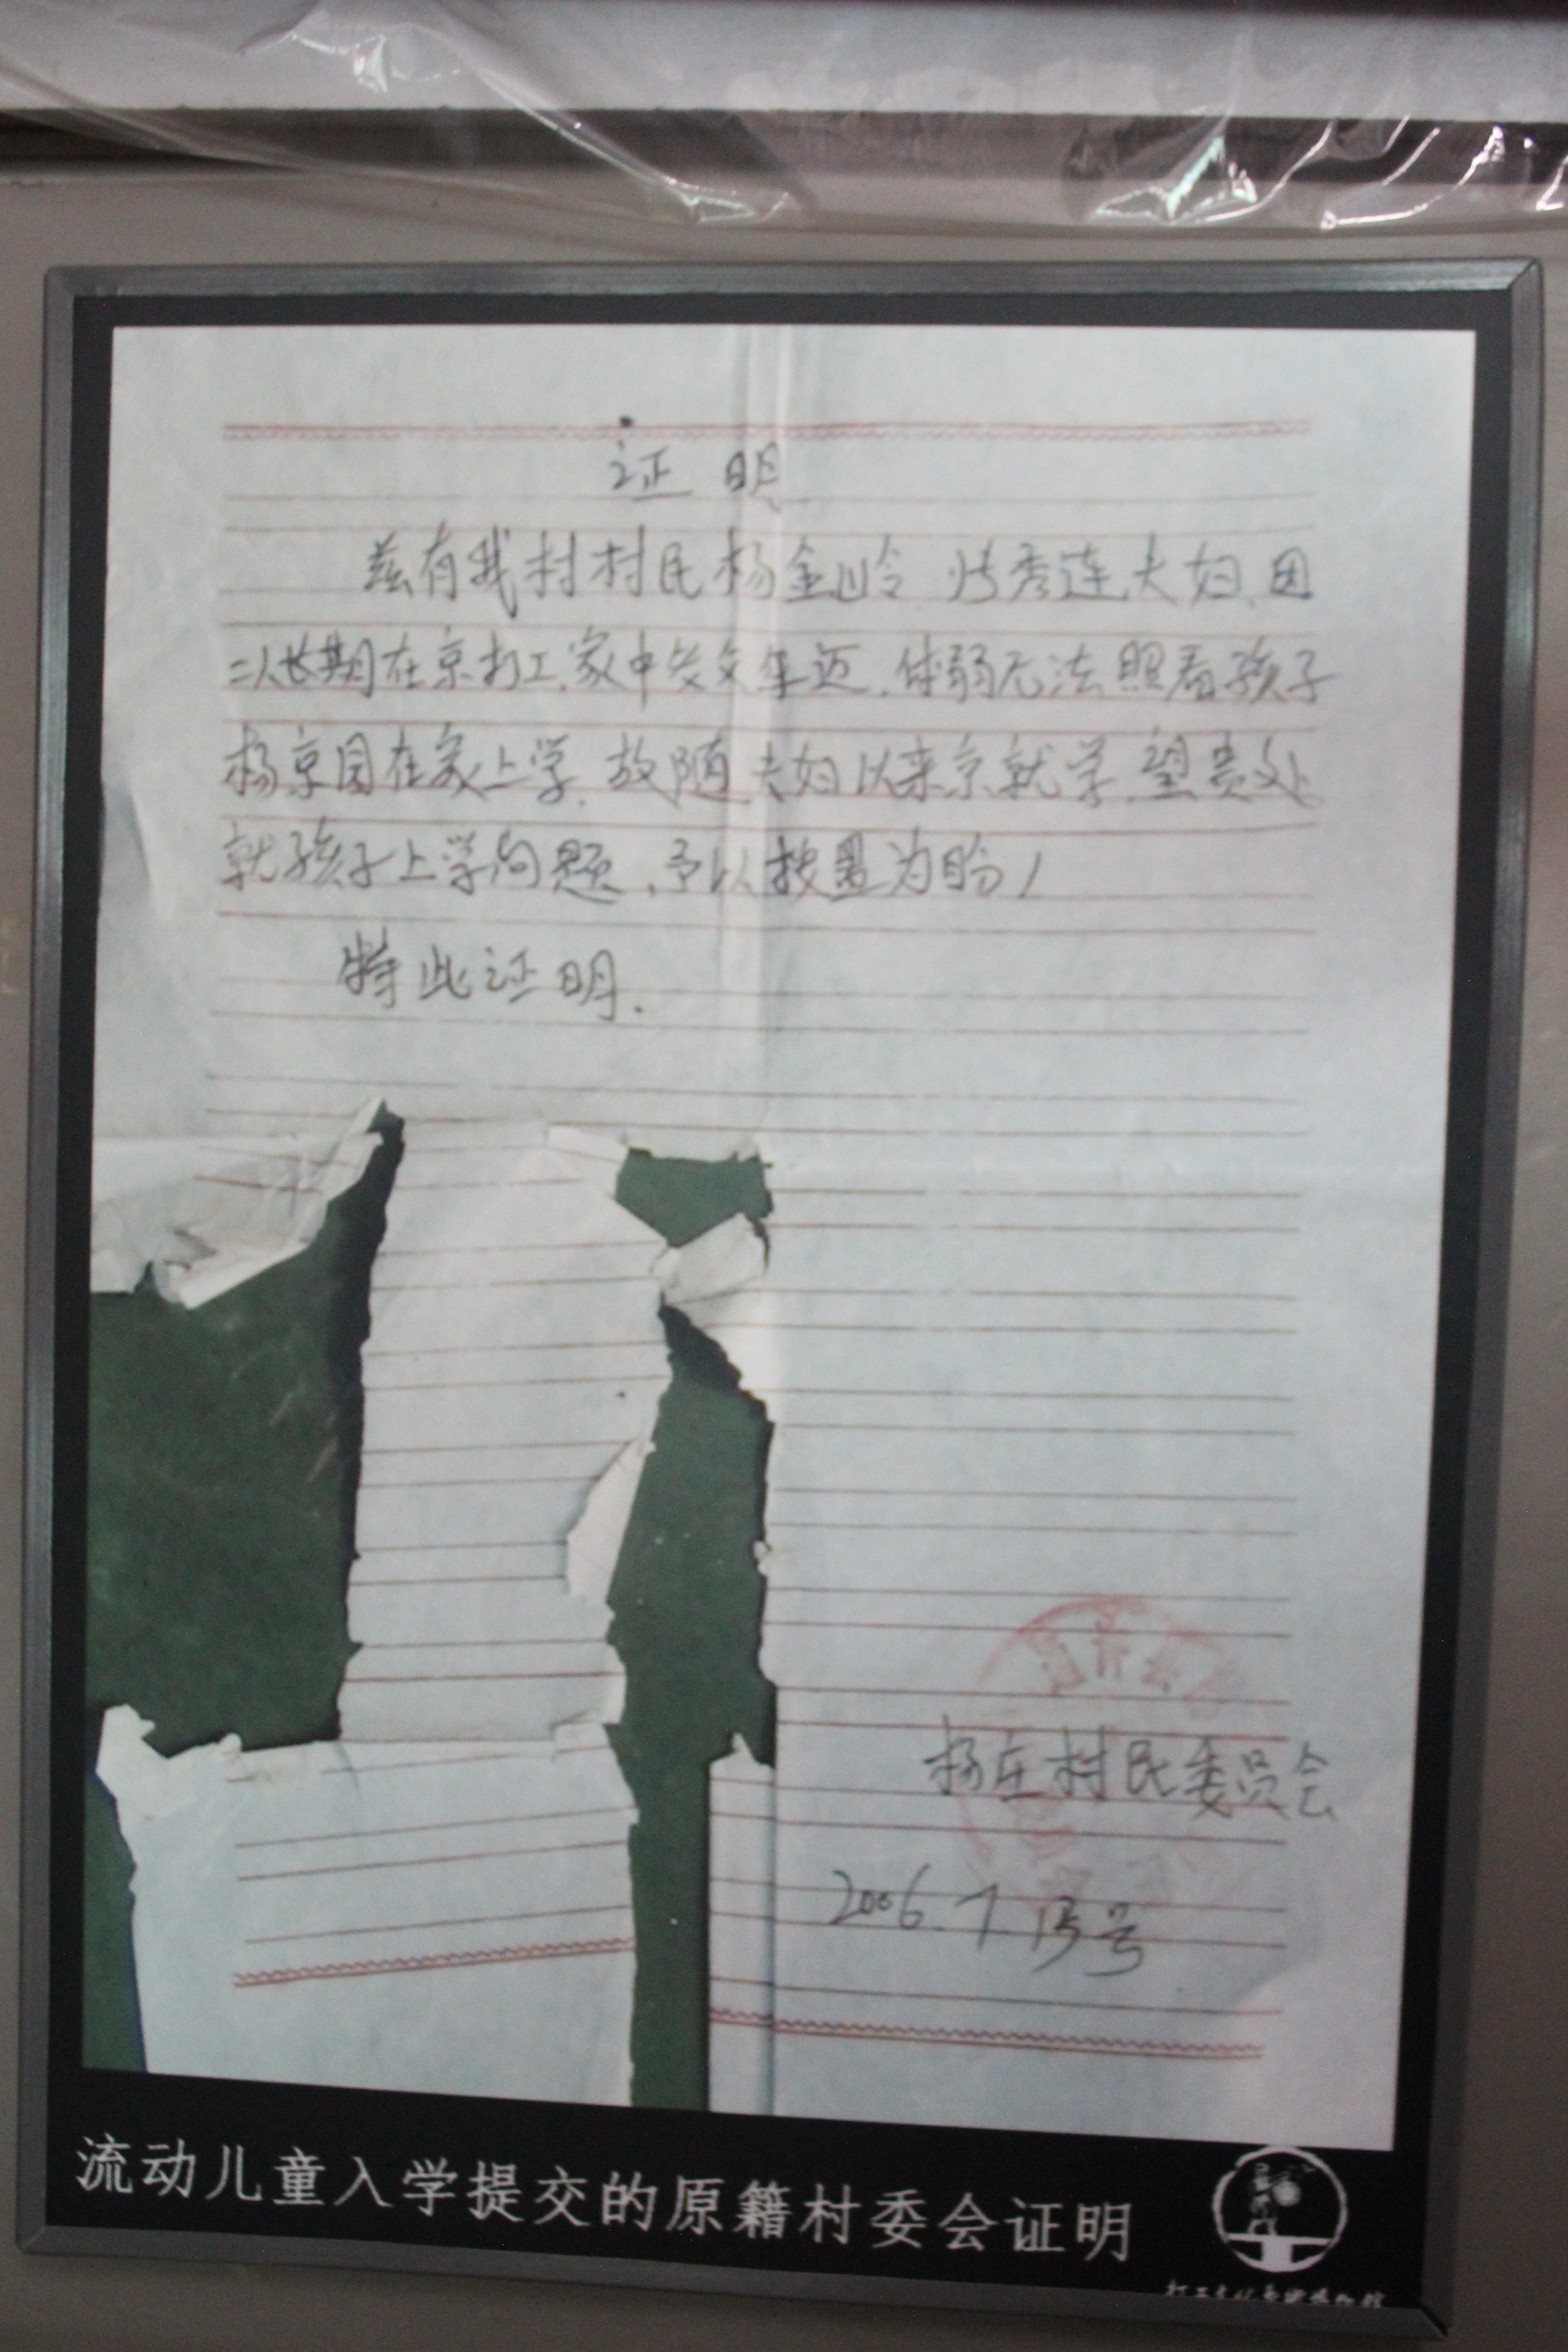 证明
兹有我村村民杨金岭 秀连夫妇,因
二人长期在京打工,家中父年迈,体弱无法照看孩子
杨京园在家上学,故随夫妇以来京就学,望贵处
就孩子上学问题,予以按置为盼!
特此证明.
杨庄村民委员会
2006.7.15号
流动儿童入学提交的原籍村委会证明
打工文化艺术博物馆